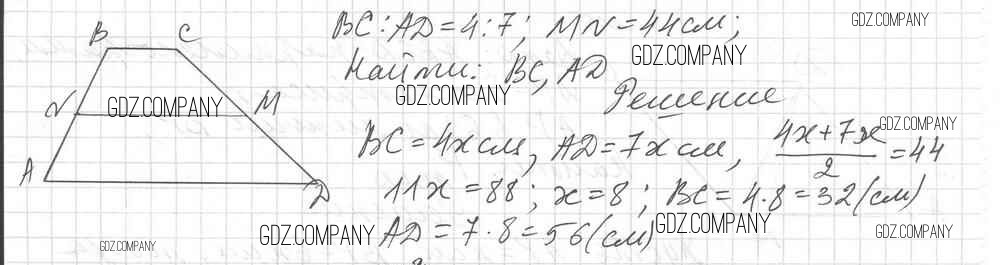 BC:AD=4:7; MN=44см;
GDZ.COMPANY
B C
GDZ.COMPANY
Найти: BC, AD
GDZ.COMPANY
Решение
N GDZ.COMPANY M
GDZ.COMPANY
BC=4x см, AD=7x см, (4x+7x)/2=44
A D
11x=88; x=8; BC=4·8=32(см)
GDZ.COMPANY GDZ.COMPANY GDZ.COMPANY
AD=7·8=56(см)
GDZ.COMPANY